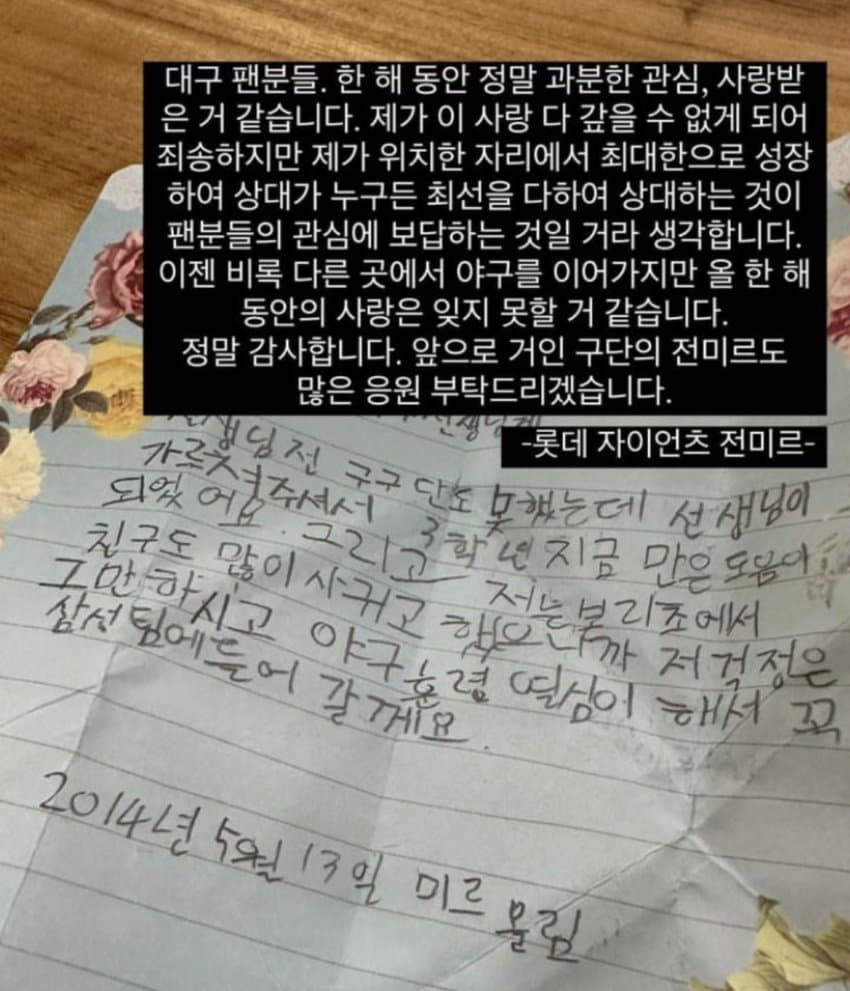 대구 팬분들. 한 해 동안 정말 과분한 관심, 사랑받
은 거 같습니다. 제가 이 사랑 다 갚을 수 없게 되어
죄송하지만 제가 위치한 자리에서 최대한으로 성장
하여 상대가 누구든 최선을 다하여 상대하는 것이
팬분들의 관심에 보답하는 것일 거라 생각합니다.
이젠 비록 다른 곳에서 야구를 이어가지만 올 한 해
동안의 사랑은 잊지 못할 거 같습니다.
정말 감사합니다. 앞으로 거인 구단의 전미르도
많은 응원 부탁드리겠습니다.
-롯데 자이언츠 전미르-
선생님께
선생님 전 구구단도 못했는데 선생님이
가르쳐주셔서 3학년 지금 만은 도움이
되었어요. 그리고 저는 보리초에서
친구도 많이 사귀고 했으니까 저 걱정은
그만하시고 야구 훈령 열심이 해서 꼭
삼성팀에 들어 갈께요.
2014년 5월 13일 미르 올림